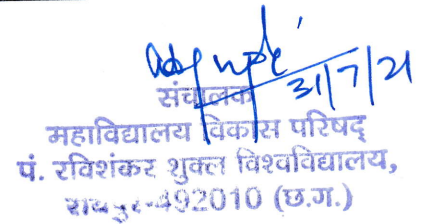 31/7/21
संचालक
महाविद्यालय विकास परिषद्
पं. रविशंकर शुक्ल विश्वविद्यालय,
रायपुर-492010 (छ.ग.)